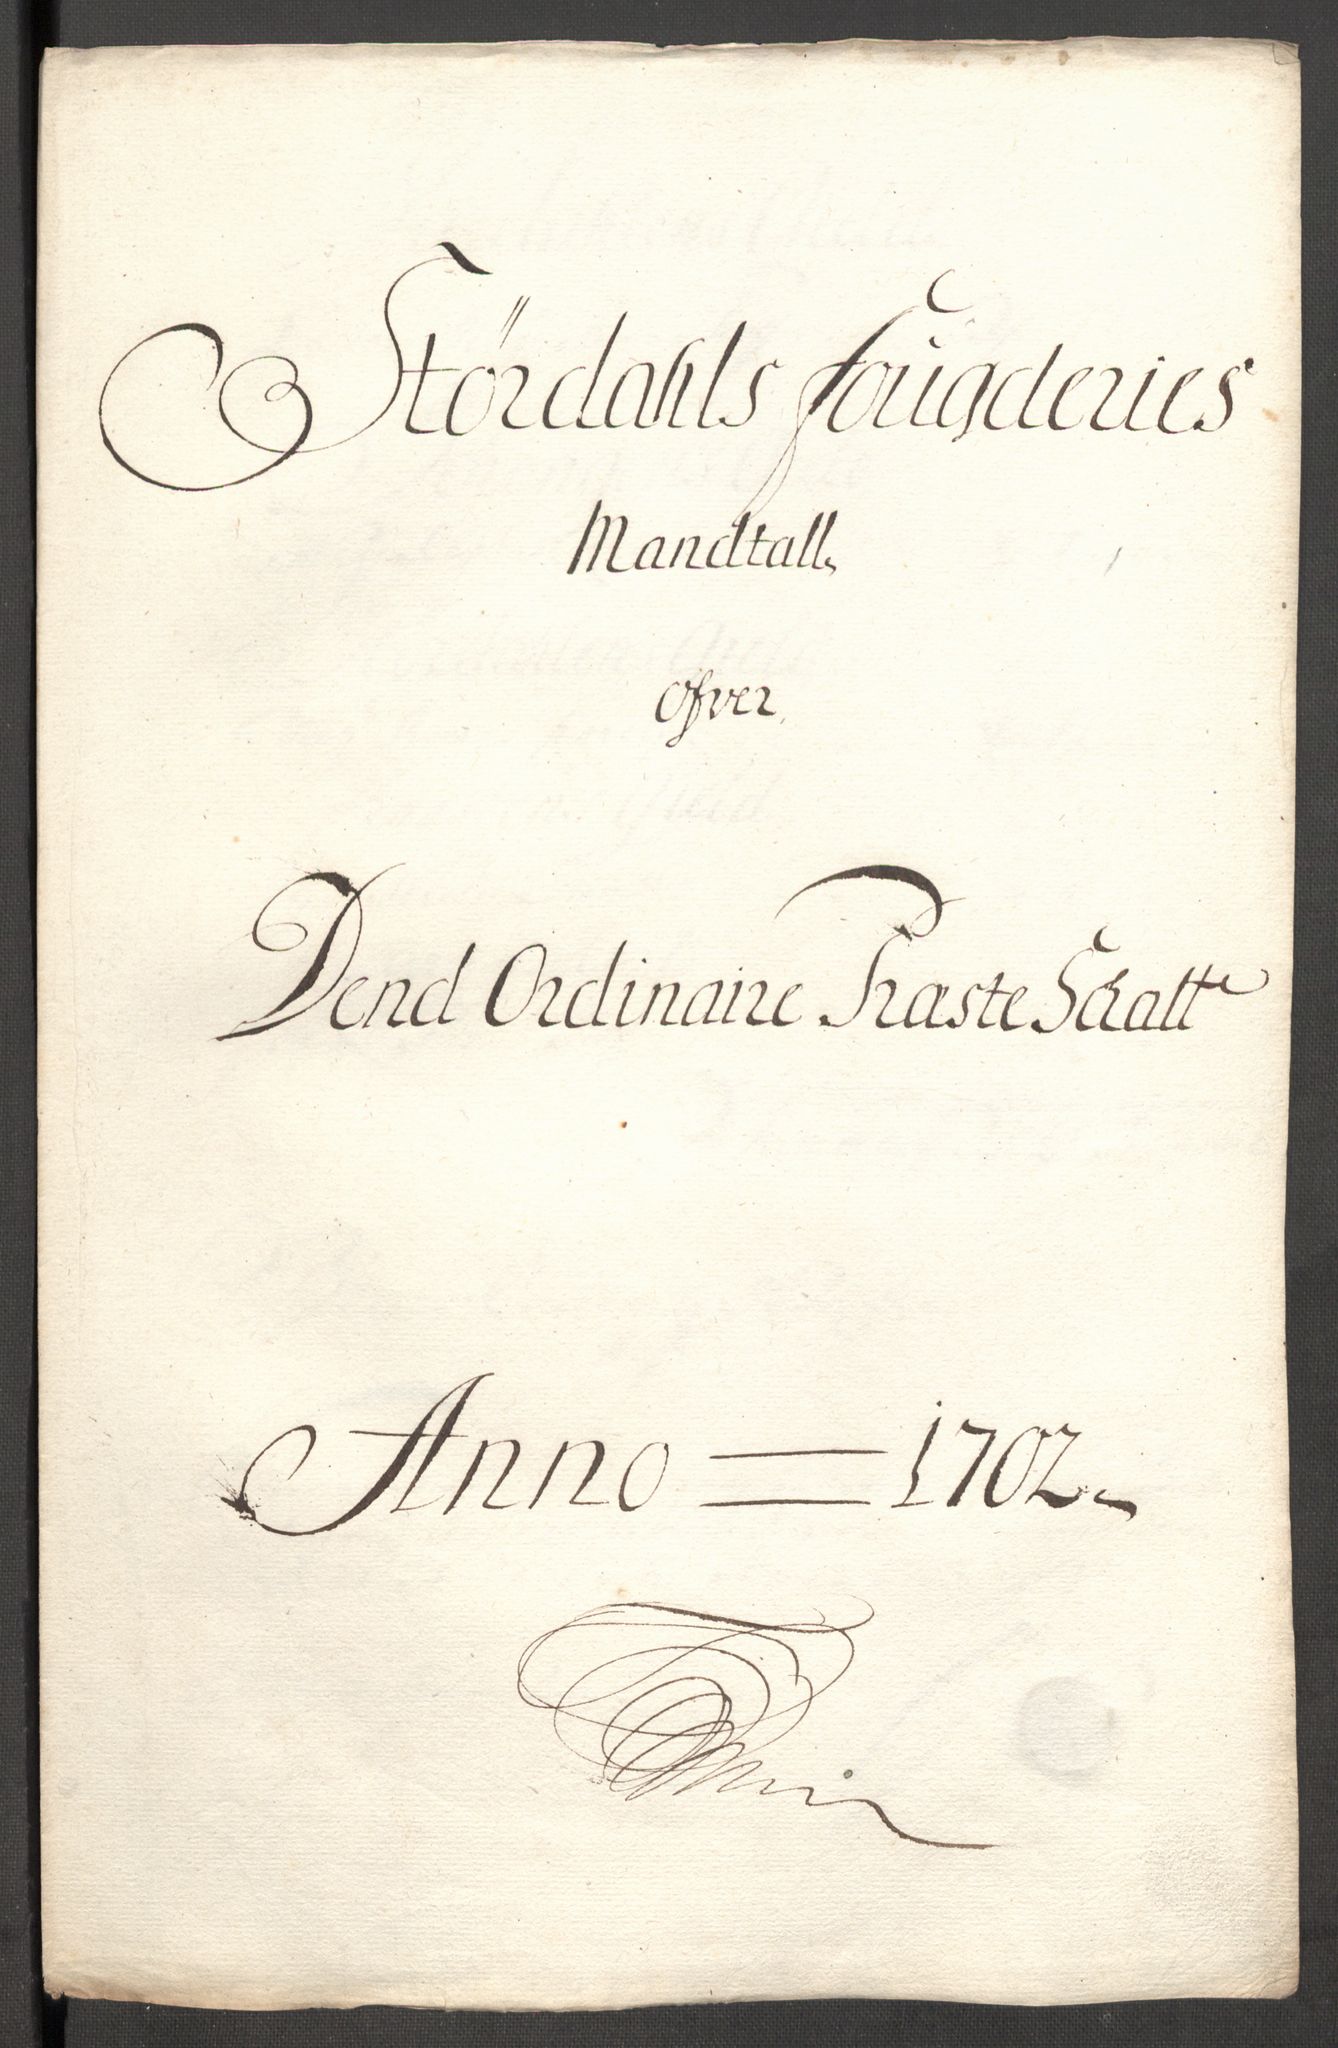 Stördahls fougderies
Mandtall
Ofver
Dend Ordinaire Præste Schatt
Anno = 1702